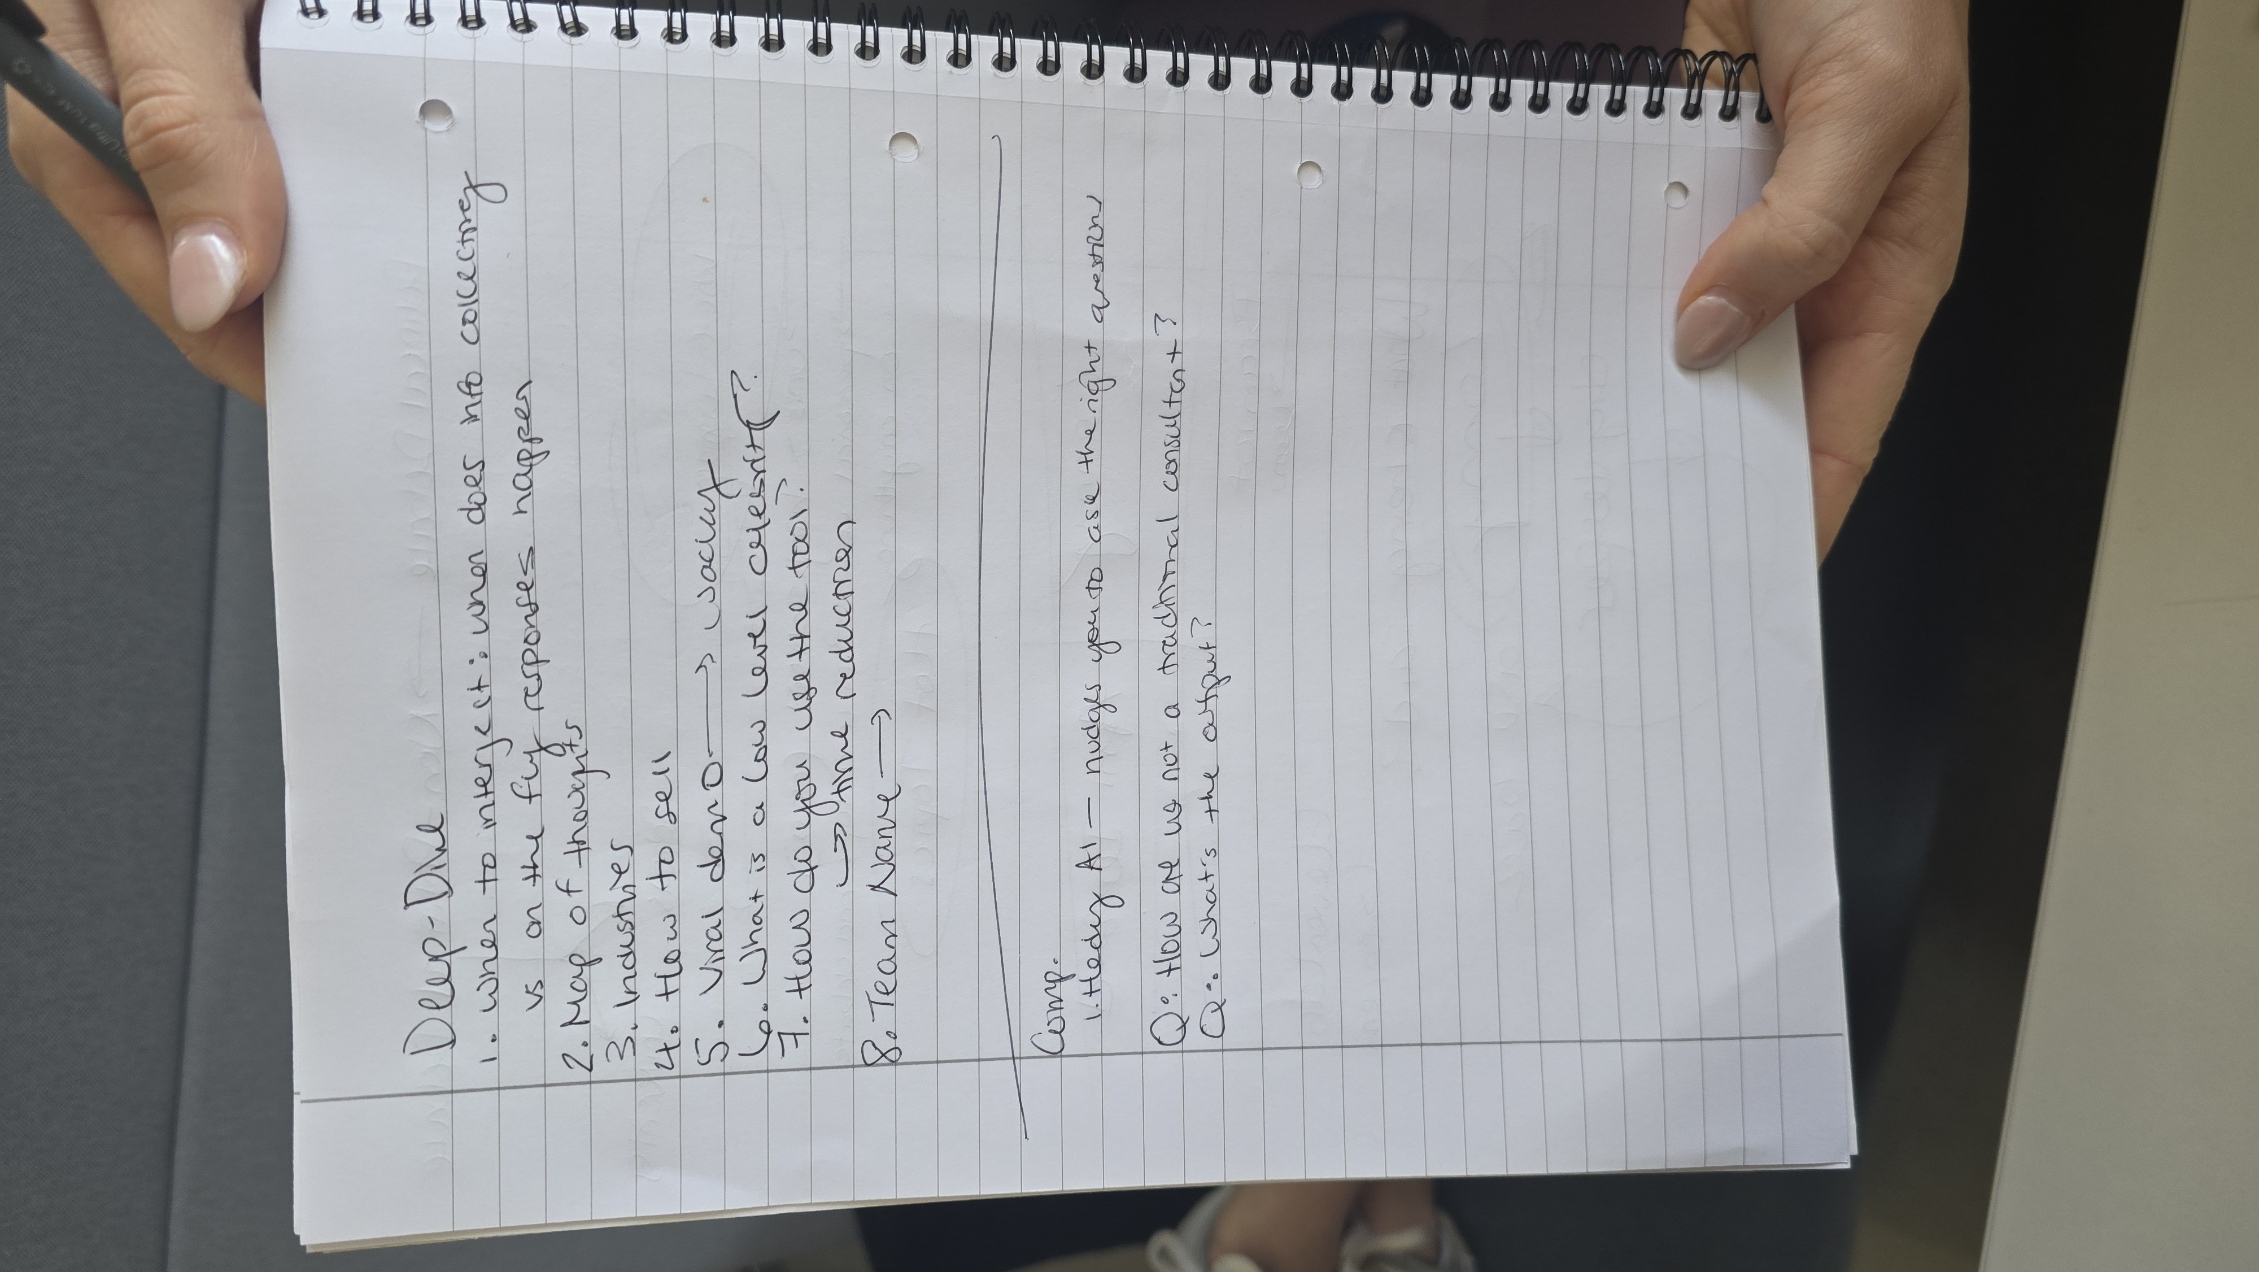 Deep-Dive
1. When to interject: when does info collecting
vs on the fly responses happen
2. Map of thoughts
3. Industries
4. How to sell
5. Viral demo → wacky
6. What is a low level celebrity?
7. How do you use the tool?
↪ time reduction
8. Team Name →
Comp.
1. Hedy AI — nudges you to ask the right questions
Q: How are we not a traditional consultant?
Q: What's the output?